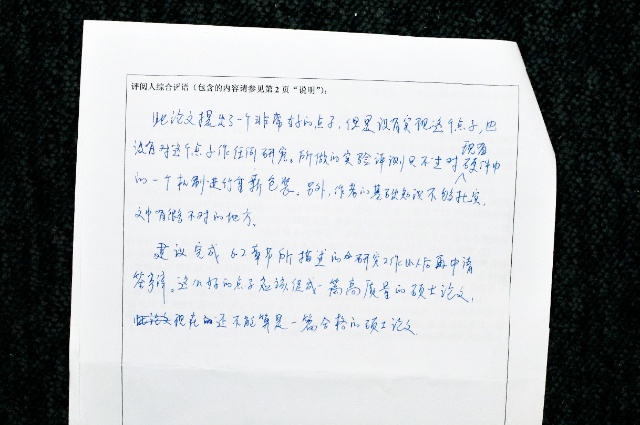 评阅人综合评语（包含的内容请参见第2页“说明”）：
此论文提出了一个非常好的点子，但是没有实现这个点子，也
没有对这个点子作任何研究。所做的实验评测只不过对现有硬件中
的一个机制进行重新包装。另外，作者的基础知识不够扎实，
文中有很多不对的地方。
建议完成6.2章节所描述的研究工作以后再申请
答辩。这么好的点子应该促成一篇高质量的硕士论文，
此论文现在还不能算是一篇合格的硕士论文。